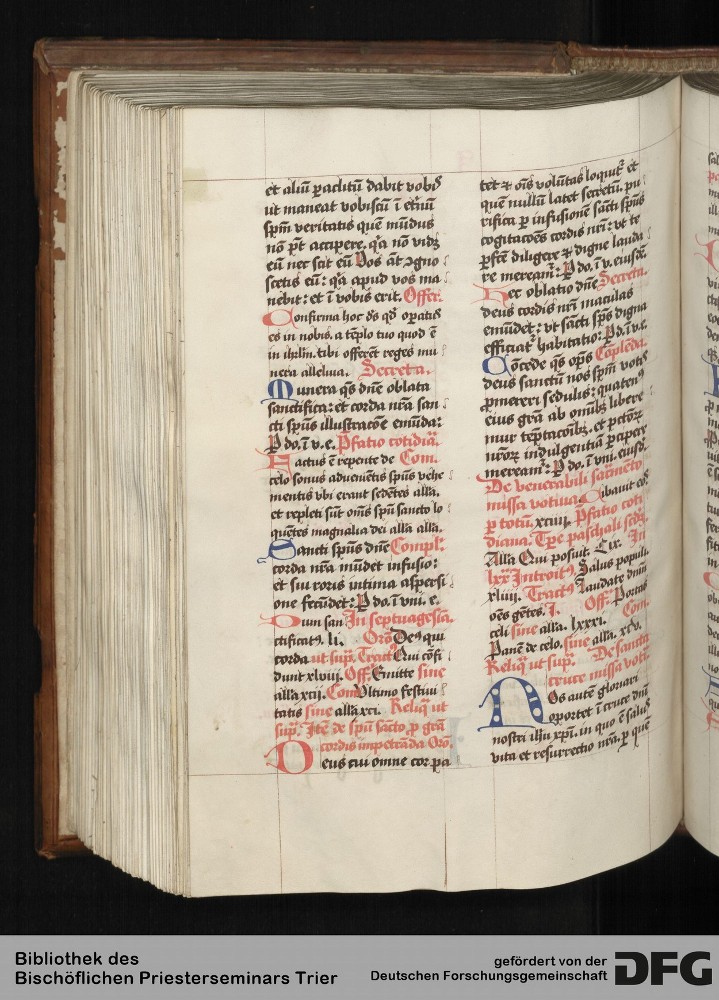 et aliū ꝑaclitū dabit vobis
ut maneat vobiscū ī eternū
spm̄ veritatis quē mūdus
nō pōt accipere. q̇a nō vidꝫ
eū nec scit eū Vos āt ꝯgno
scetis eū: q̇a apud vos ma
nebit: et ī vobis erit. Offer.
Confirma hoc ds qd̄ opatus
es in nobis. a tēplo tuo quod ē
in ihrlm̄. tibi offerēt reges mu
nera alleluia. Secreta.
Munera qs dnē oblata
sanctifica: et corda nrā san
cti spūs illustracōe emūda:
P do. ī v. e. Pfatio cotidia.
Factus ē repente de Com.
celo sonus advenētis spūs vehe
mentis vbi erant sedētes alla.
et repleti sūt oms spū sancto lo
quētes magnalia dei alla alla.
Sancti spūs dnē Compl.
corda nrā mūdet infusio:
et sui roris intima aspersi
one fecūdet: P do. ī vni. e.
Dum san In septuagesia.
ctificatꝰ. li. Oro Deꝰ qui
corda ut supͣ. Tractꝰ Qui cōfi
dunt xlviij. Off. Emitte sine
alla xcij. Com Vltimo festiui
tatis sine alla xci. Reliq̄ ut
supͣ. Itē de spū sācto, ꝓ grā
cordis impetrāda Oro.
Deus cui omne cor pa
tet & ois volūtas loquit̄ et
quē nullū latet secretū. pu
rifica ꝑ infusionē sācti spūs
cogitacōes cordis nrī: vt te
ꝑfcē diligere & digne lauda
re mereamr̄: P do. ī v. eiusdē.
Hec oblatio dnē Secreta.
deus cordis nrī maculas
emūdet: vt sācti spūs digna
efficiat̄ habitatio: P d. ī v. e.
Cōcede qs ops Coplēda.
deus sanctū nos spm̄ votis
ꝓmereri sedulis: quatenꝰ
eius grā ab omibꝫ libere
mur tēptacoībꝫ. et pctōꝝ
nrōꝝ indulgentiā ꝑcipere
mereamr̄: P do. ī vni. eiusd.
De venerabili sacmēto
missa votiua. Cibauit eos
ꝑ totū. xciiij. Pfatio coti
diana. Tꝑe paschali secdꝫ.
Alla Qui posuit. cix. In
lxx Introitꝰ Salus populi
xliiij. Tractꝰ Laudate dnm̄
oēs gētes. l. Off. Portas
celi sine alla. lxxxi. Com.
Panē de celo. sine alla. xcv.
Reliq̄ ut supͣ. De sancta
cruce missa voti
Nos autē gloriari
oportet ī cruce dnī
nostri ihu xpī. in quo ē salus
vita et resurrectio nrā. ꝑ quē
Bibliothek des
Bischöflichen Priesterseminars Trier
gefördert von der
Deutschen Forschungsgemeinschaft
DFG